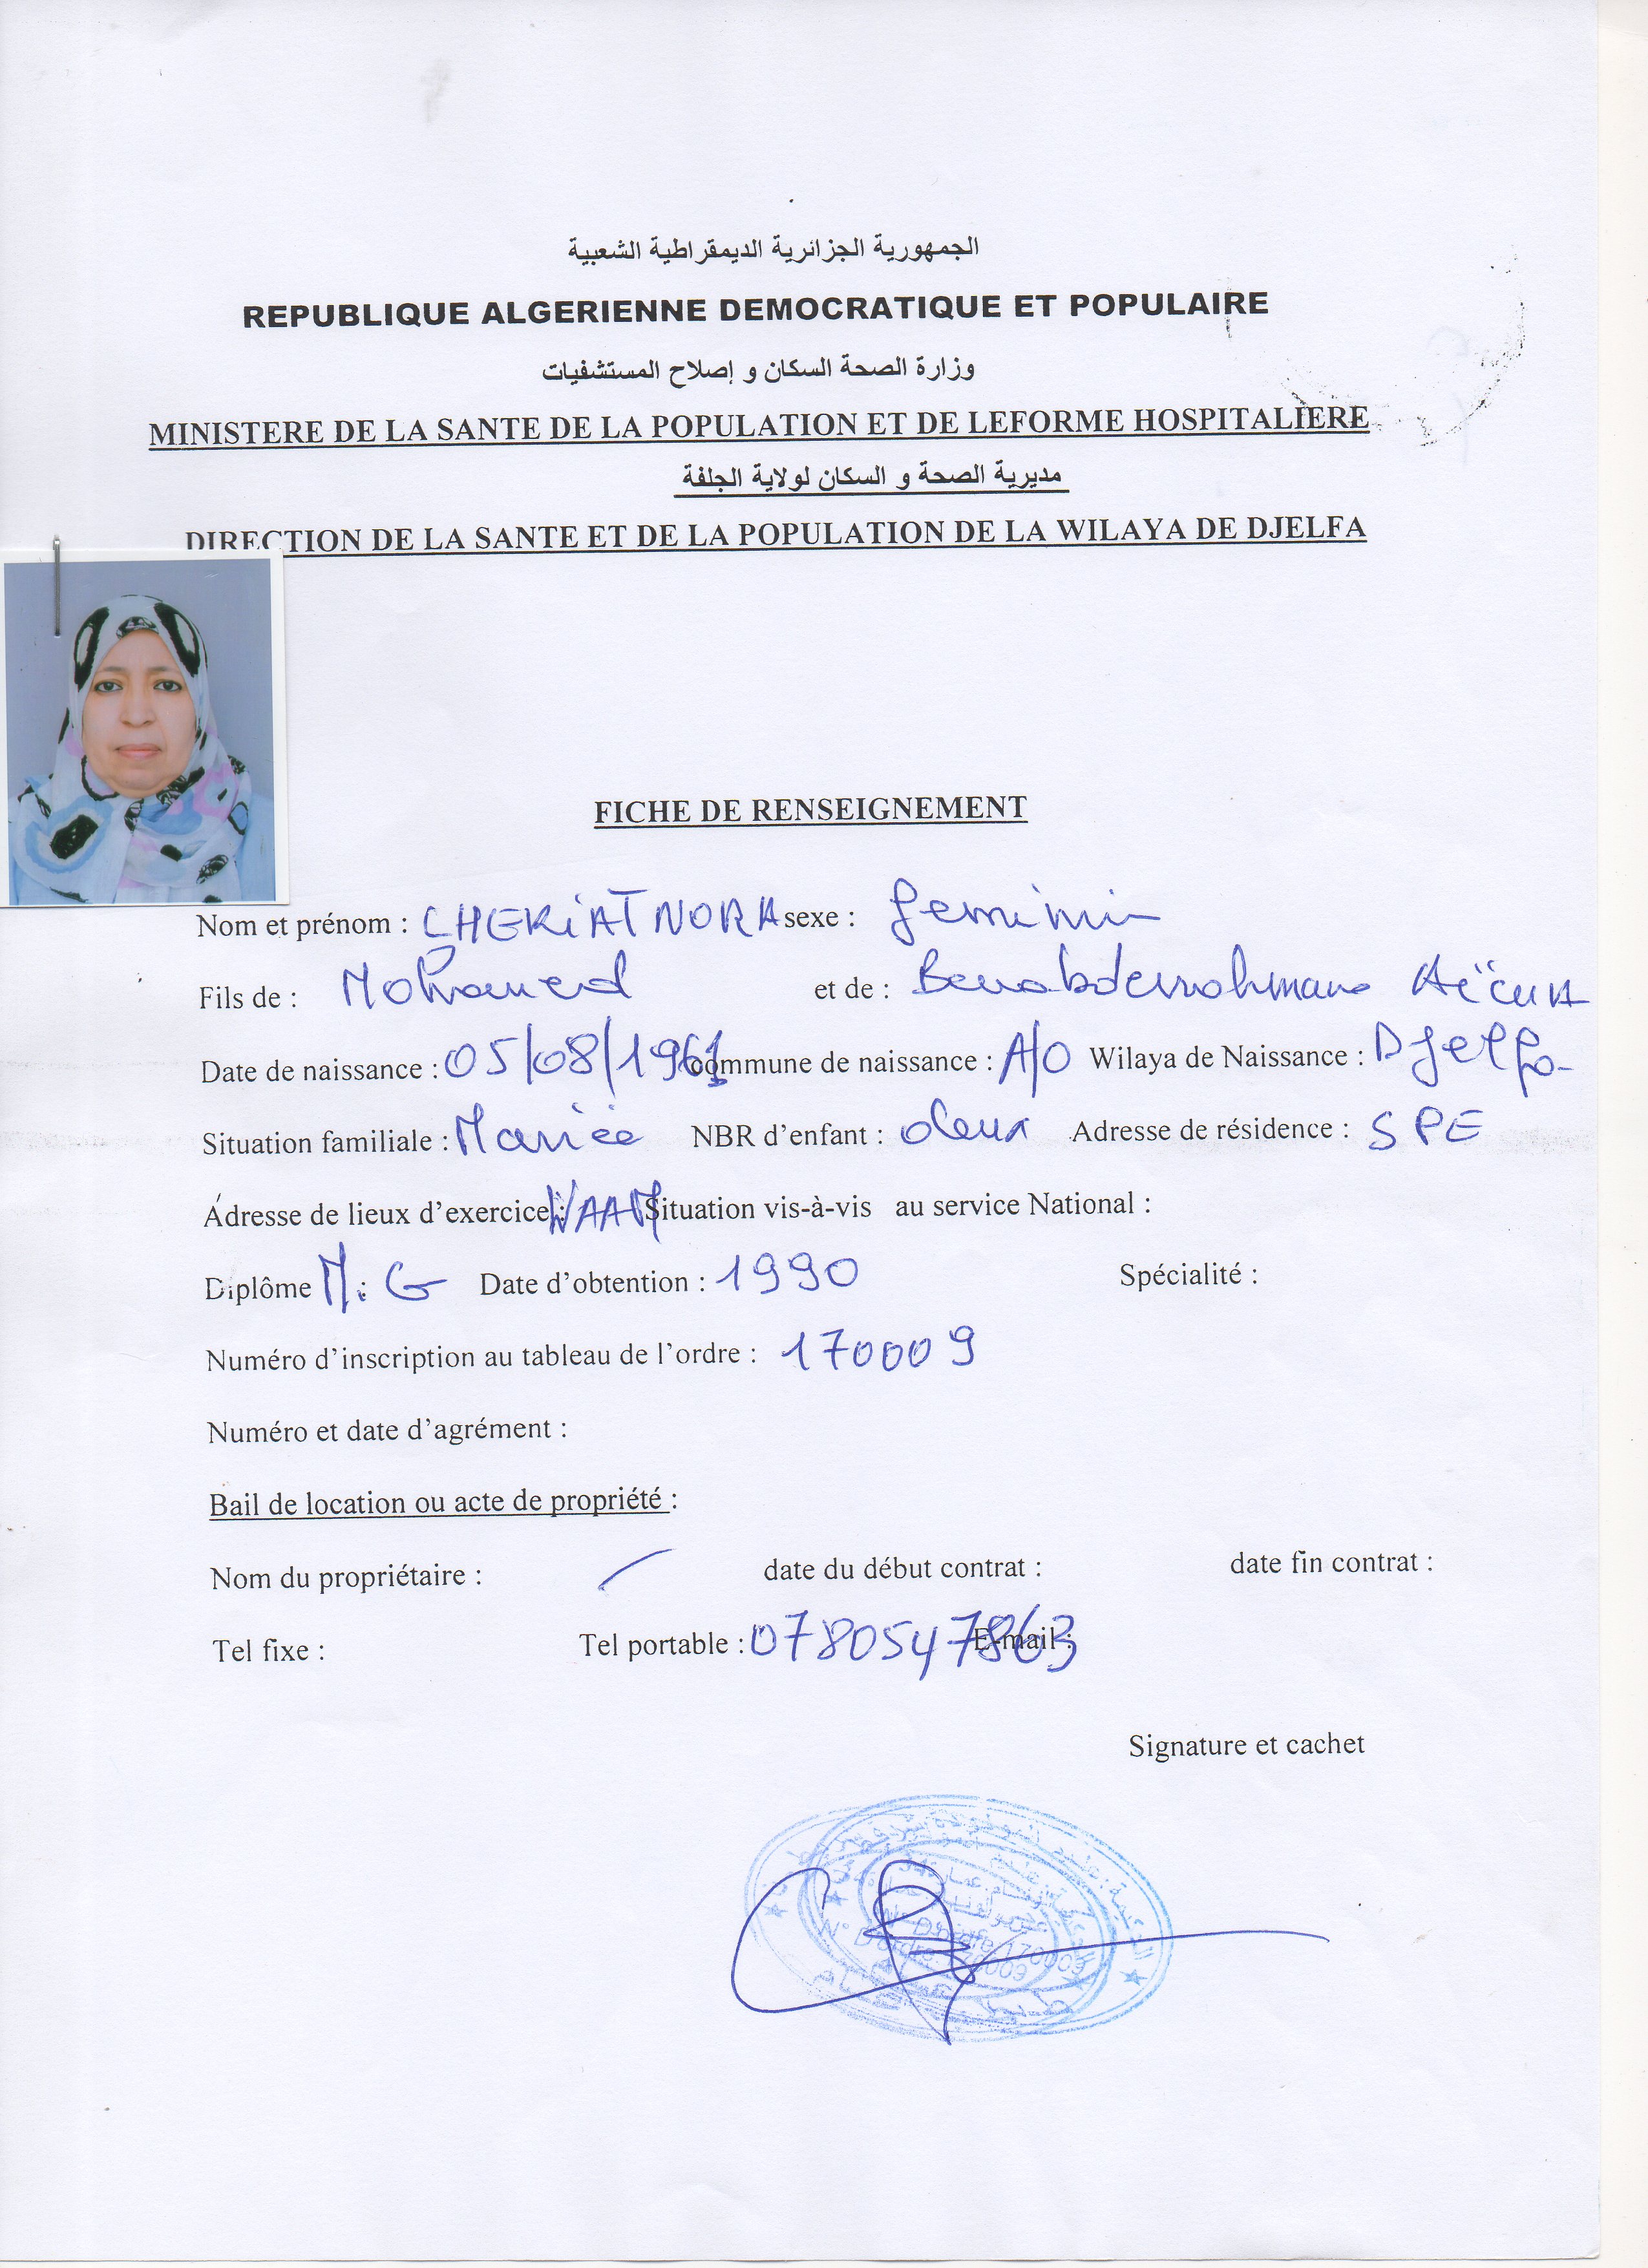 الجمهورية الجزائرية الديمقراطية الشعبية
REPUBLIQUE ALGERIENNE DEMOCRATIQUE ET POPULAIRE
وزارة الصحة السكان و إصلاح المستشفيات
MINISTERE DE LA SANTE DE LA POPULATION ET DE LEFORME HOSPITALIERE
مديرية الصحة و السكان لولاية الجلفة
DIRECTION DE LA SANTE ET DE LA POPULATION DE LA WILAYA DE DJELFA
FICHE DE RENSEIGNEMENT
Nom et prénom : CHERIAT NORA sexe : feminin
Fils de : Mohamed et de : Benabderrahmane
Date de naissance : 05/08/1961 commune de naissance : A/O Wilaya de Naissance : Djelfa
Situation familiale : Mariée NBR d’enfant : deux Adresse de résidence : SPE
Adresse de lieux d’exercice : Situation vis-à-vis au service National :
Diplôme : M. G Date d’obtention : 1990 Spécialité :
Numéro d’inscription au tableau de l’ordre : 170009
Numéro et date d’agrément :
Bail de location ou acte de propriété :
Nom du propriétaire : / date du début contrat : date fin contrat :
Tel fixe : Tel portable : 0780547863 E-mail :
Signature et cachet
N° D'ordre 170009